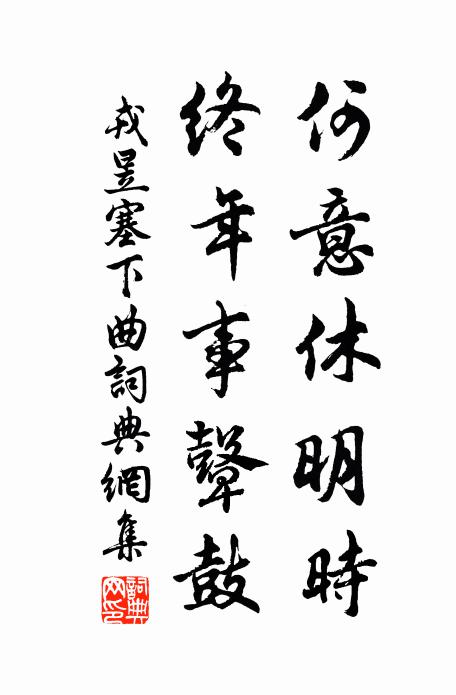 何意休明時
終年事鼙鼓
戎昱塞下曲詞典網集
詞典网印